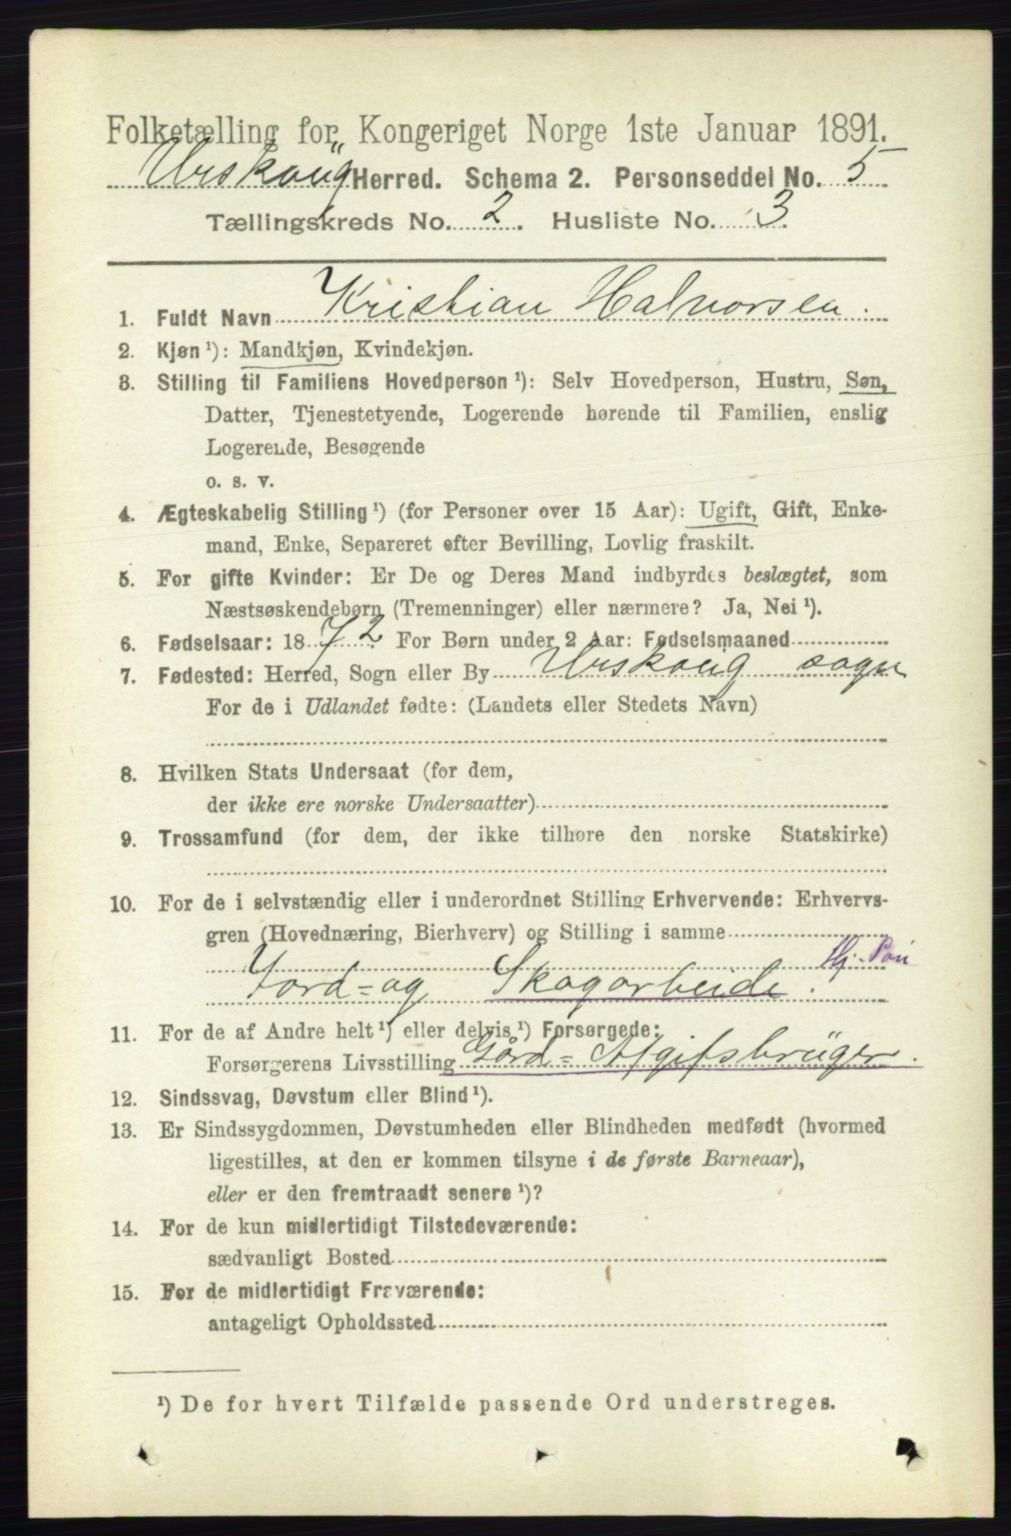 Folketælling for Kongeriget Norge 1ste Januar 1891.
Urskoug Herred. Schema 2. Personseddel No. 5
Tællingskreds No. 2. Husliste No. 3
1. Fuldt Navn Kristian Halvorsen.
2. Kjøn ¹): Mandkjøn, Kvindekjøn.
3. Stilling til Familiens Hovedperson ¹): Selv Hovedperson, Hustru, Søn,
Datter, Tjenestetyende, Logerende hørende til Familien, enslig
Logerende, Besøgende
o. s. v.
4. Ægteskabelig Stilling ¹) (for Personer over 15 Aar): Ugift, Gift, Enke-
mand, Enke, Separeret efter Bevilling, Lovlig fraskilt.
5. For gifte Kvinder: Er De og Deres Mand indbyrdes beslægtet, som
Næstsøskendebørn (Tremenninger) eller nærmere? Ja, Nei ¹).
6. Fødselsaar: 1872. For Børn under 2 Aar: Fødselsmaaned
7. Fødested: Herred, Sogn eller By Urskoug sogn
For de i Udlandet fødte: (Landets eller Stedets Navn)
8. Hvilken Stats Undersaat (for dem,
der ikke ere norske Undersaatter)
9. Trossamfund (for dem, der ikke tilhøre den norske Statskirke)
10. For de i selvstændig eller i underordnet Stilling Erhvervende: Erhvervs-
gren (Hovednæring, Bierhverv) og Stilling i samme
Jord- og Skogarbeide.
11. For de af Andre helt ¹) eller delvis ¹) Forsørgede:
Forsørgerens Livsstilling Gård- Afgifsbrüger.
12. Sindssvag, Døvstum eller Blind ¹).
13. Er Sindssygdommen, Døvstumheden eller Blindheden medfødt (hvormed
ligestilles, at den er kommen tilsyne i de første Barneaar),
eller er den fremtraadt senere ¹)?
14. For de kun midlertidigt Tilstedeværende:
sædvanligt Bosted
15. For de midlertidigt Fraværende:
antageligt Opholdssted
¹) De for hvert Tilfælde passende Ord understreges.